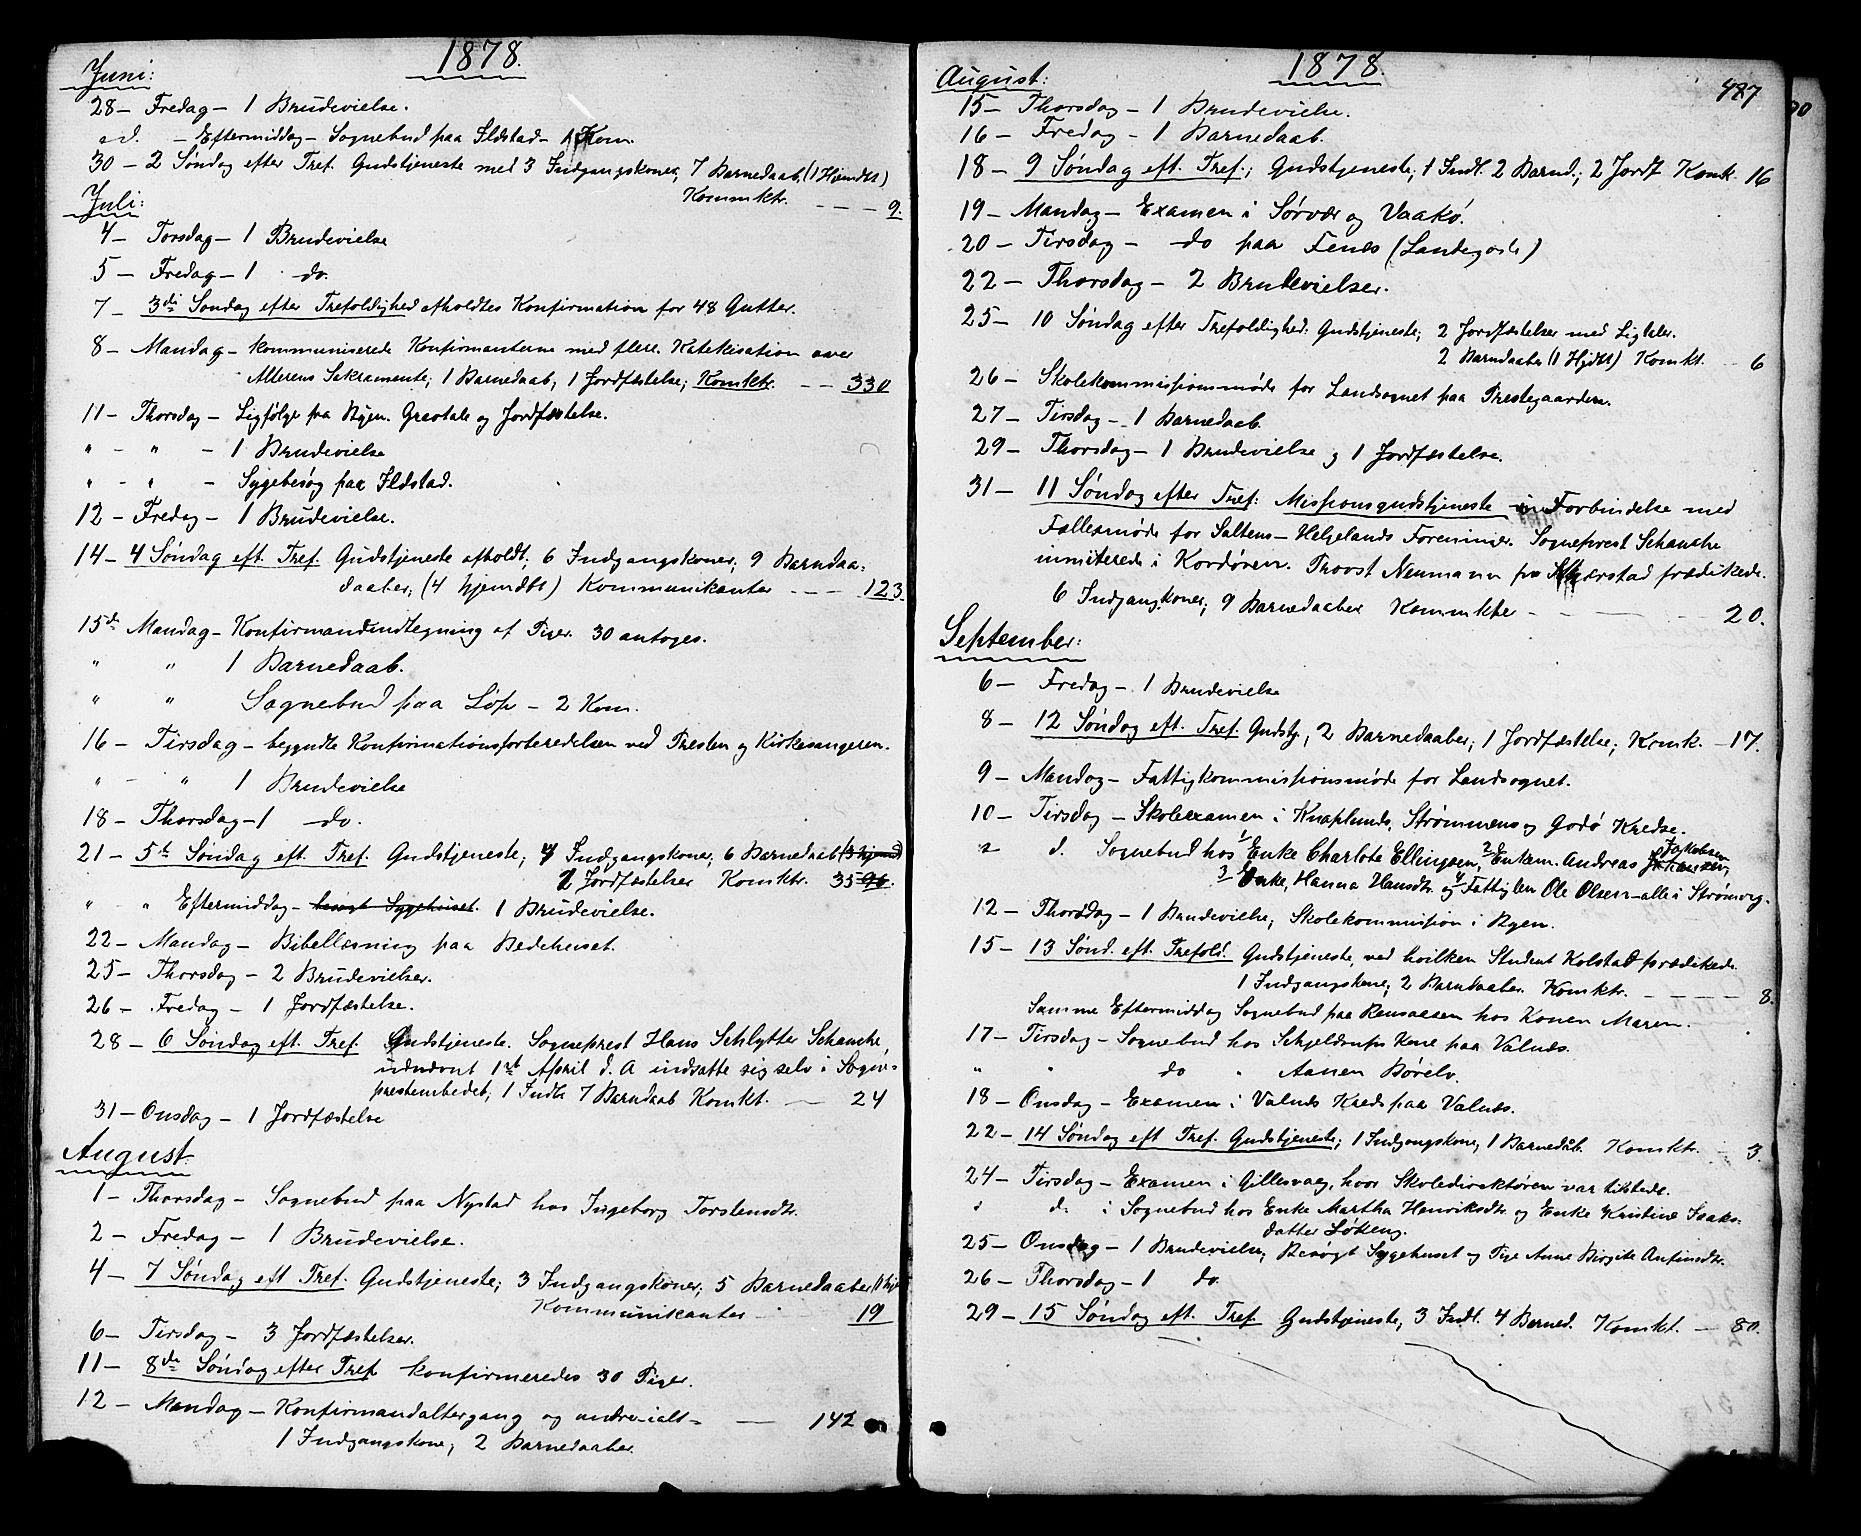 1878.
Juni:
28 – Fredag – 1 Brudevielse.
d. – Eftermiddag – Sognebud paa Ildstad – Kom.
30 – 2 Søndag efter Tref. Gudstjeneste med 3 Indgangskoner, 7 Barnedaab, (1 Hjemdbt)
Kommktr. – – – 9.
Juli:
4 – Torsdag – 1 Brudevielse
5 – Fredag – 1 do.
7 – 3di Søndag efter Trefoldighed afholdtes Konfirmation for 48 Gutter.
8 – Mandag – kommuniserede Konfirmanterne med flere. Katekisation over
Alterens Sakramente; 1 Barnedaab, 1 Jordfæstelse; Komktr. – – 330
11 – Thorsdag – Ligfølge fra Byen. Gravtale og Jordfæstelse.
" – " – 1 Brudevielse
" – " – Sygebesøg paa Ildstad.
12 – Fredag – 1 Brudevielse.
14 – 4 Søndag eft. Tref. Gudstjeneste afholdt; 6 Indgangskoner, 9 Barndaa-
daaber, (4 hjemdbt) Kommunikanter – – – 123.
15de Mandag – Konfirmandindtegning af Piger. 30 antoges.
" " 1 Barnedaab.
" " Sognebud paa Løp – 2 Kom.
16 – Tirsdag – begyndte Konfirmationsforberedelsen ved Presten og Kirkesangeren.
" – " 1 Brudevielse
18 – Thorsdag – 1 do.
21 – 5te Søndag eft. Tref. Gudstjeneste, 4 Indgangskoner, 6 Barnedaab (3 hjemd
2 Jordfæstelser Komktr. 35 96.
" " Eftermiddag – besøgt Sygehuset. 1 Brudevielse.
22 – Mandag – Bibellæsning paa Bedehuset.
25 – Thorsdag – 2 Brudevielser.
26 – Fredag – 1 Jordfæstelse.
28 – 6 Søndag eft. Tref. Gudstjeneste. Sogneprest Hans Schlytter Schanche,
udnævnt 1ste April d. A indsatte sig selv i Sogne-
prestembedet; 1 Indl. 7 Barndaab Komkt. – 24
31 – Onsdag – 1 Jordfæstelse
August:
1 – Thorsdag – Sognebud paa Nystad hos Ingeborg Torstensdtr.
2 – Fredag – 1 Brudevielse.
4 – 7 Søndag eft Tref. Gudstjeneste; 3 Indgangskoner, 5 Barnedaaber (1 hje
Kommunikanter – 19
6 – Tirsdag – 3 Jordfæstelser.
11 – 8de Søndag efter Tref konfirmeredes 30 Piger.
12 – Mandag – Konfirmandaltergang og andre – ialt – – 142
1 Indgangskone; 2 Barnedaaber.
1878.
487
August:
15 – Thorsdag – 1 Brudevielse.
16 – Fredag – 1 Barnedaab.
18 – 9 Søndag eft. Tref.; Gudstjeneste; 1 Indl. 2 Barnd.; 2 Jordf Komk. 16
19 – Mandag – Examen i Sørvær og Vaakø.
20 – Tirsdag – do paa Fenes (Landegode)
22 – Thorsdag – 2 Brudevielser.
25 – 10 Søndag efter Trefoldighed: Gudstjeneste; 2 Jordfæstelser med Ligtaler.
2 Barndaaber (1 Hjdbt) Komkt. – 6
26 – Skolekommissionsmøde for Landsognet paa Prestegaarden.
27 – Tirsdag – 1 Barnedaab.
29 – Thorsdag – 1 Brudevielse og 1 Jordfæstelse.
31 – 11 Søndag efter Tref: Missionsgudstjeneste i Forbindelse med
Fællesmøde for Saltens – Helgelands Foreninger. Sogneprest Schanche
inviterede i Kordøren. Provst Neumann fra Skjærstad prædikede.
6 Indgangkoner, 9 Barnedaaber Kommkter – – 20.
September:
6 – Fredag – 1 Brudevielse
8 – 12 Søndag eft. Tref. Gudstj, 2 Barnedaaber, 1 Jordfæstelse, Komk. – 17.
9 – Mandag – Fattigkommissionsmøde for Landsognet.
10 – Tirsdag – Skoleexamen i Knaplunds, Strømmens og Godø Kredse.
d. Sognebud hos 1/ Enke Charlote Ellingsen, 2/ Enkem. Andreas Jakobsen
3 Enke, Hanna Hansdtr. og 4 Fattiglem Ole Olsen – alle i Strømvig.
12 – Thorsdag – 1 Brudevielse; Skolekommission i Byen.
15 – 13 Sønd. eft. Trefold. Gudstjeneste, ved hvilken Student Kolstad prædikede
1 Indgangskone; 2 Barndaaber. Komktr. – – – – 8.
Samme Eftermiddag Sognebud paa Rensaasen hos Konen Maren.
17 – Tirsdag – Sognebud hos Kone paa Valnæs.
" " do " Børelv.
18 – Onsdag – Examen i Valnæs Kreds paa Valnæs.
22 – 14 Søndag eft Tref. Gudstjeneste; 1 Indgangskone, 1 Barnedåb. Komktr. – 3.
24 – Tirsdag – Examen i Gillesvaag, hvor Skoledirektøren var tilstede.
d. i Sognebud hos Enke Martha Henriksdtr. og Enke Kristine Isaks-
datter Løkeng.
25 – Onsdag – 1 Brudevielse; Besøgt Sygehuset og Pige Anne Birgite Anfinsdtr.
26 – Thorsdag – 1 do.
29 – 15 Søndag eft. Tref. Gudstjeneste, 3 Indl. 4 Barned. Komkt. – 80.